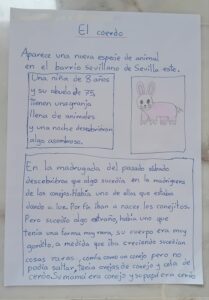 El coerdo
Aparece una nueva especie de animal
en el barrio Sevillano de Sevilla este.
Una niña de 8 años
y su abuelo de 75
tienen una granja
llena de animales
y una noche descubrieron
algo asombroso.
En la madrugada del pasado sábado
descubrieron que algo sucedía en la madriguera
de los conejos. Había uno de ellos que estaba
dando a luz. Por fin iban a nacer los conejitos.
Pero sucedió algo extraño, había uno que
tenía una forma muy rara, su cuerpo era muy
gordito, a medida que iba creciendo sucedían
cosas raras, comía como un conejo pero no
podía saltar, tenía orejas de conejo y cola de
cerdo. Su mamá era conejo y su papá era cerdo